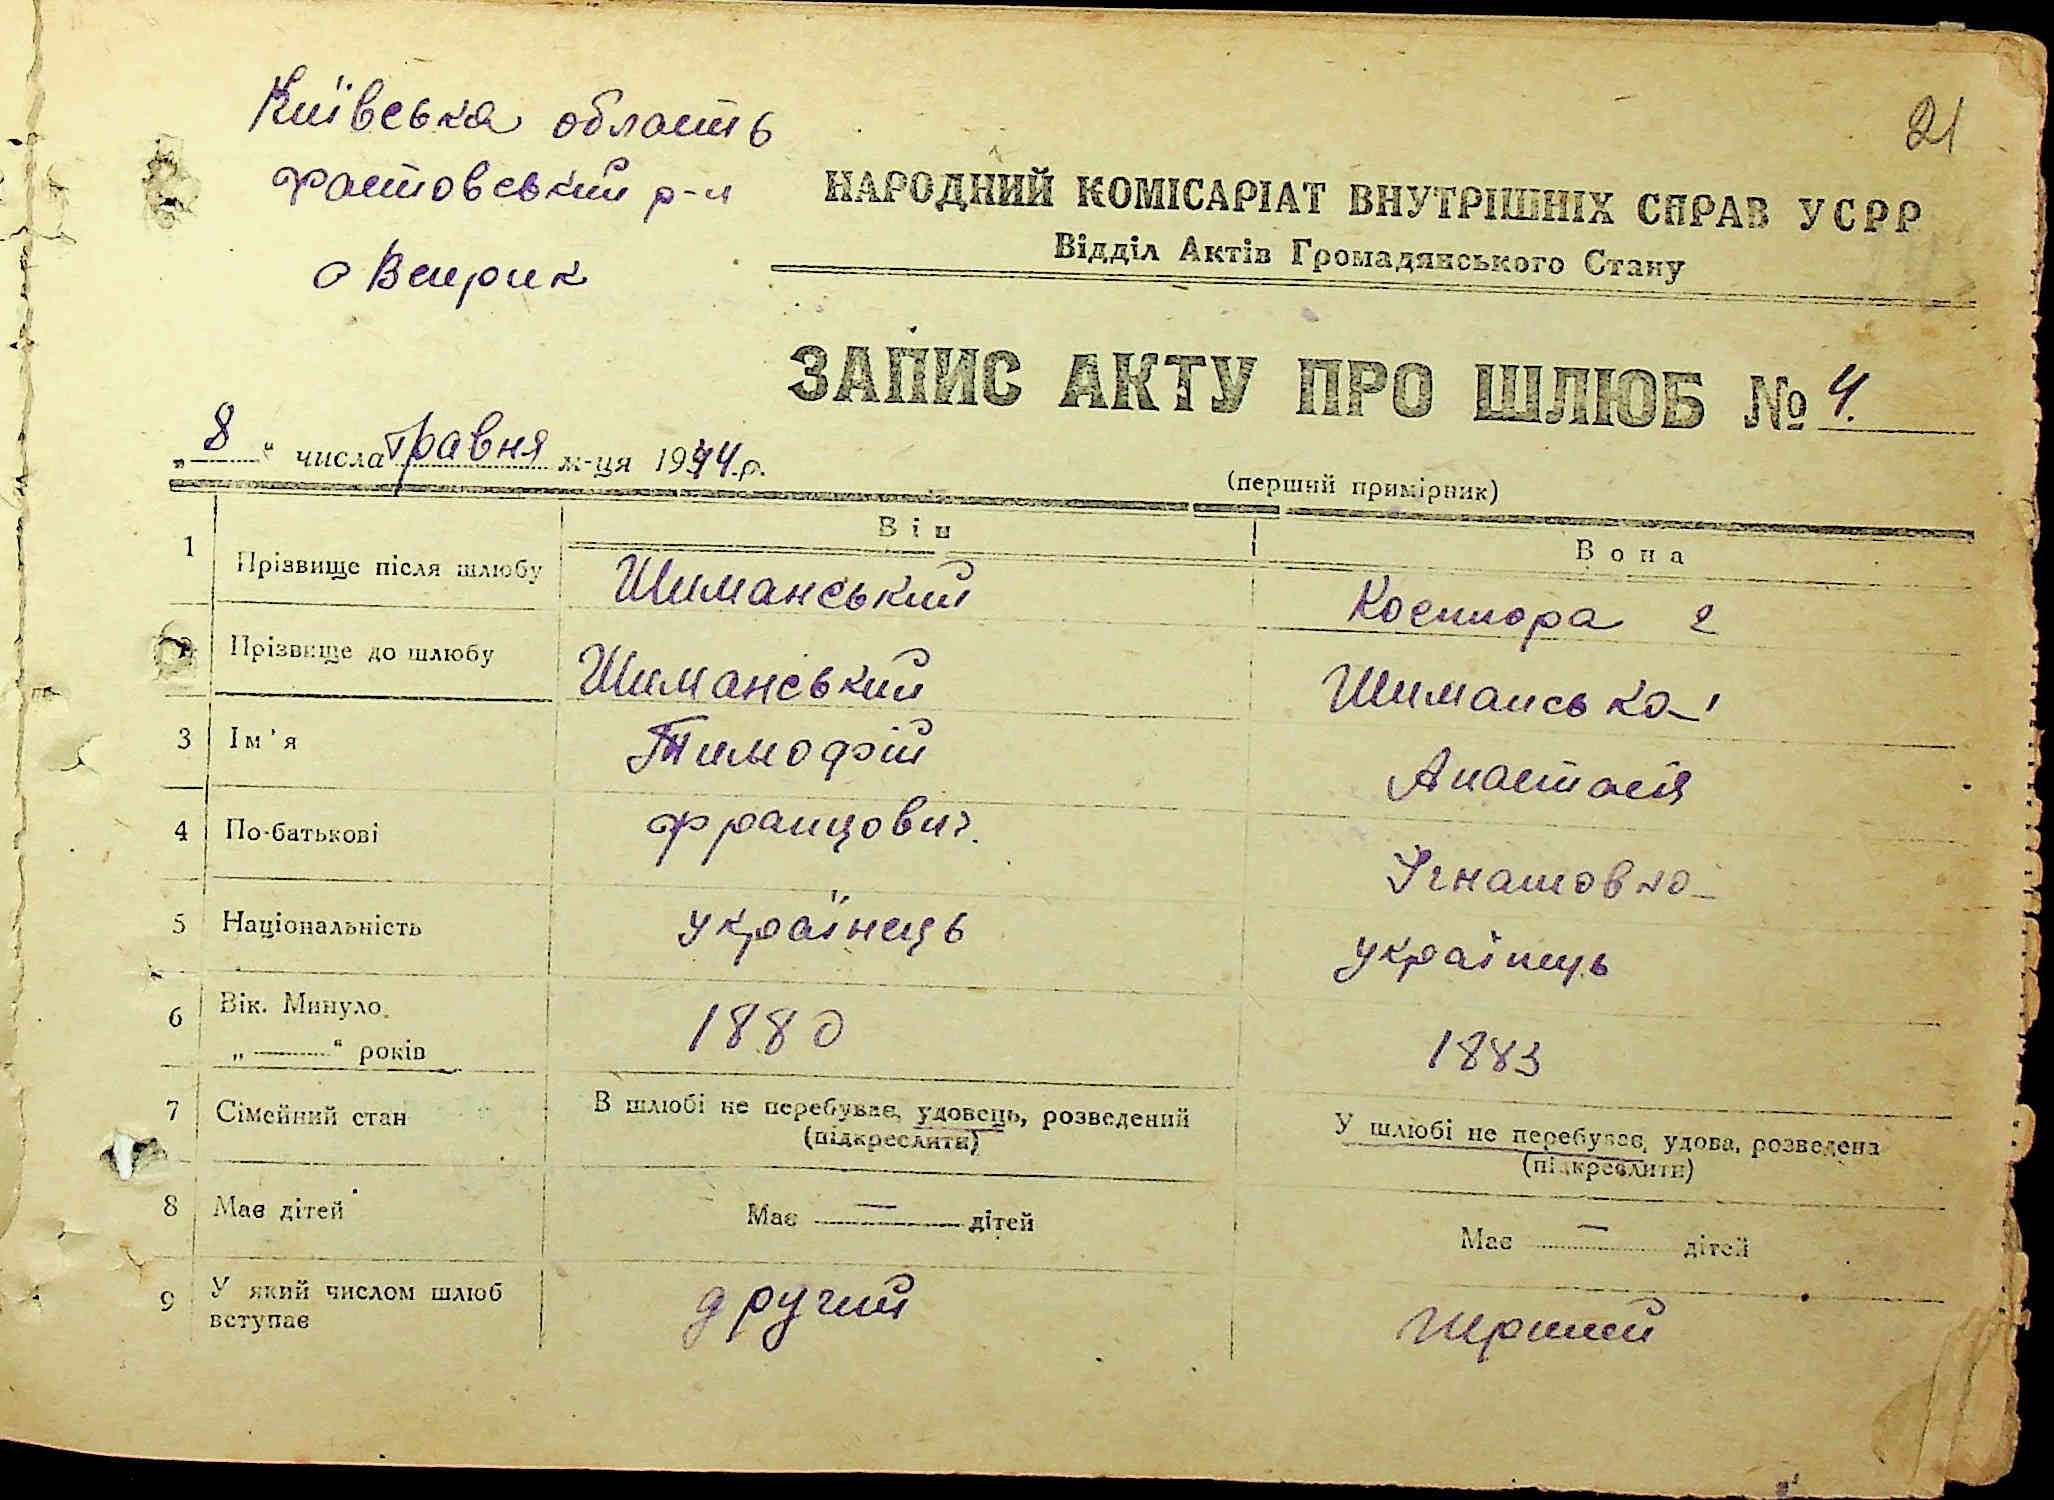 21
Київська область
Фастовський р-н
с Веприк
НАРОДНИЙ КОМІСАРІАТ ВНУТРІШНІХ СПРАВ УСРР
Відділ Актів Громадянського Стану
ЗАПИС АКТУ ПРО ШЛЮБ № 4.
„8“ числа травня м-ця 1944 р.
(перший примірник)
Він Вона
1 Прізвище після шлюбу Шиманський 2
2 Прізвище до шлюбу Шиманський Шиманська 1
3 Ім'я Тимофій Анастасія
4 По-батькові Францович Ігнатовна
5 Національність українець українець
6 Вік. Минуло „ “ років 1880 1883
7 Сімейний стан В шлюбі не перебуває, удовець, розведений (підкреслити) У шлюбі не перебуває, удова, розведена (підкреслити)
8 Має дітей Має — дітей Має — дітей
9 У який числом шлюб вступає другий перший